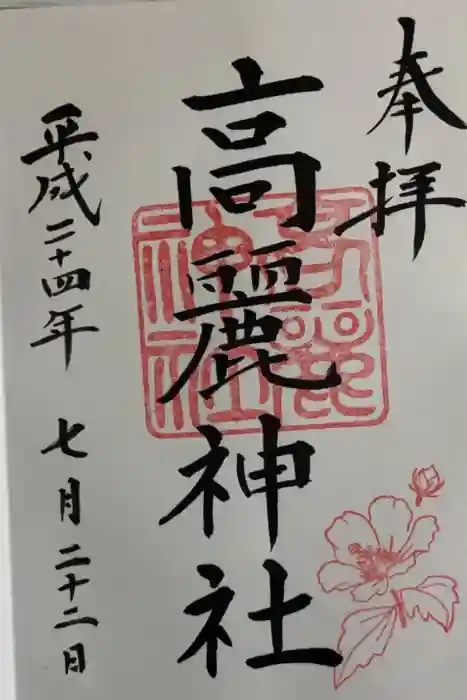 奉拝
高麗神社
平成二十四年 七月二十二日
高麗
神社